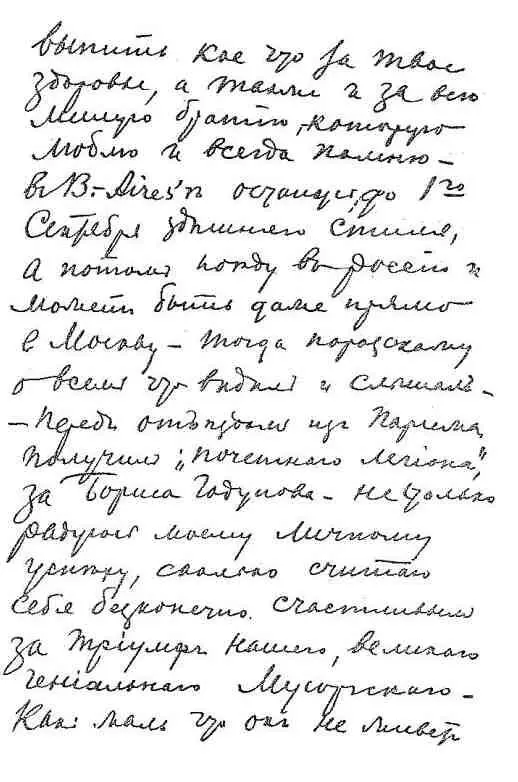 выпить кое что за твое
здоровье, а также и за всю
милую братiю, которую
люблю и всегда помню –
въ B.-Aires'ѣ останусь до 1го
Сентября здѣшняго стиля,
а потомъ поѣду въ Россiю и
можетъ быть даже прямо
въ Москву – тогда поразскажу
о всемъ что видѣлъ и слышалъ –
– Передъ отъѣздомъ изъ Парижа
получилъ „почетнаго легiона",
за Бориса Годунова – не столько
радуюсь моему личному
успѣху, сколько считаю
себя безконечно счастливымъ
за трiумфъ нашего, великаго
генiальнаго Мусоргскаго –
Какъ жаль что онъ не живетъ